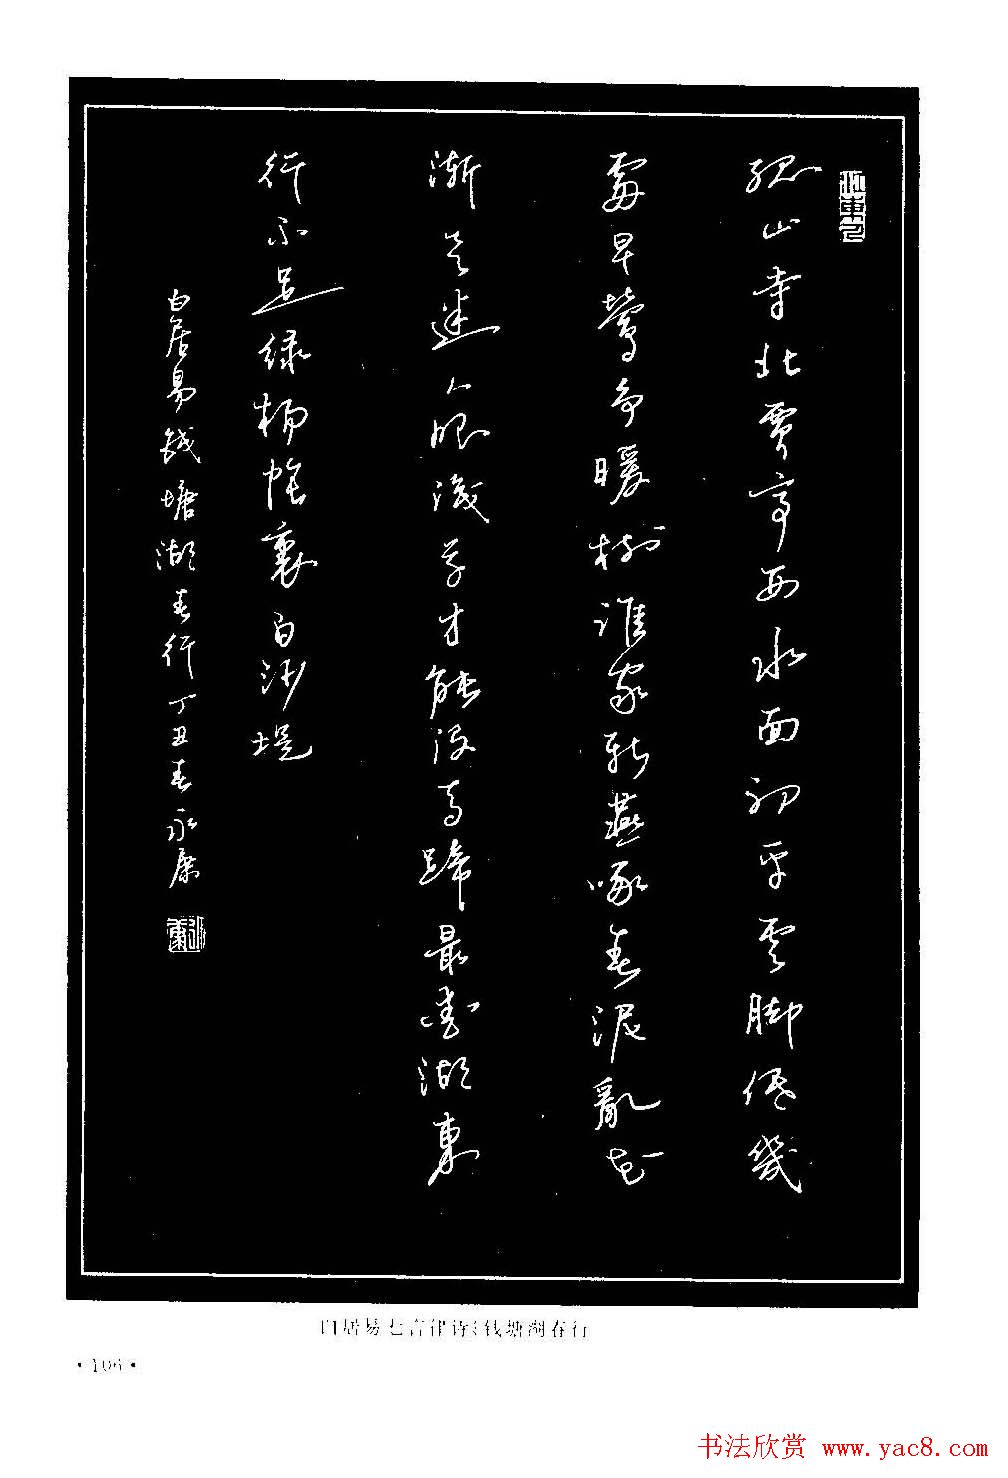 孤山寺北贾亭西水面初平云脚低幾
處早莺争暖树谁家新燕啄春泥亂花
渐欲迷人眼浅草才能没马蹄最爱湖東
行不足绿杨阴裏白沙堤
白居易钱塘湖春行丁丑春永康
白居易七言律诗:钱塘湖春行
·106·
书法欣赏 www.yac8.com